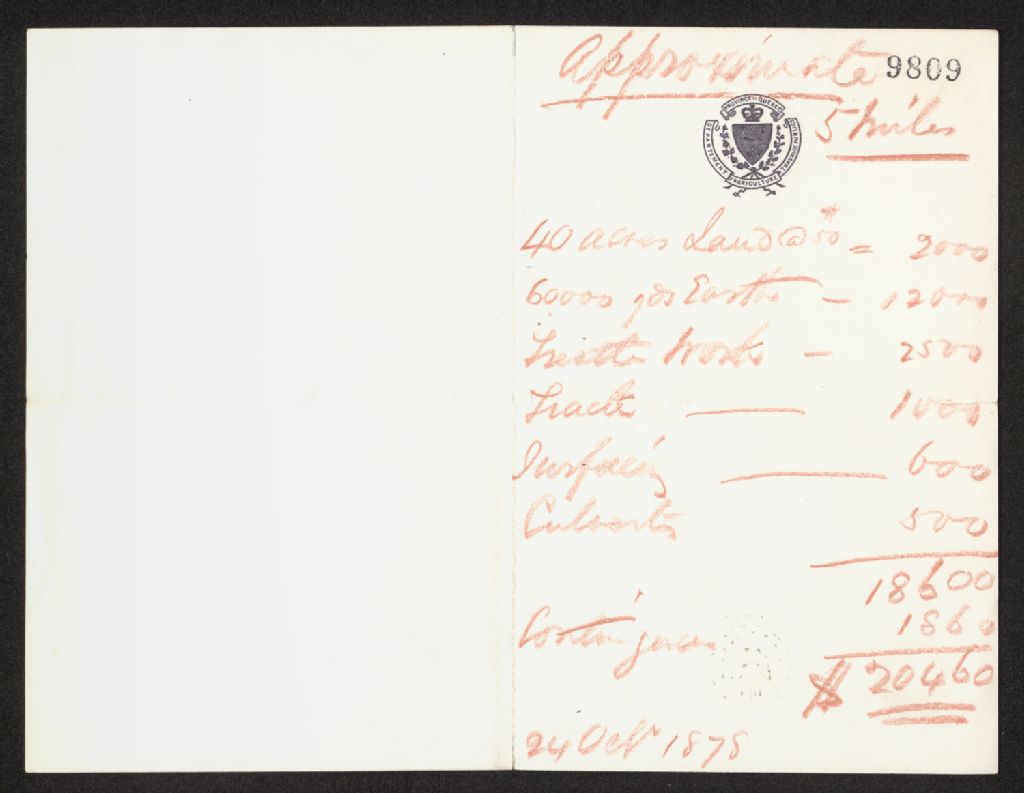 Approximate 9809
PROVINCE DE QUEBEC
DEPARTEMENT AGRICULTURE
5 Miles
40 acres Land @ $50 = 2000
60000 yds Earth — 12000
Trestle Works — 2500
Track — 1000
Surfacing — 600
Culverts 500
18600
Contingencies 1860
$ 20460
24 Oct 1878